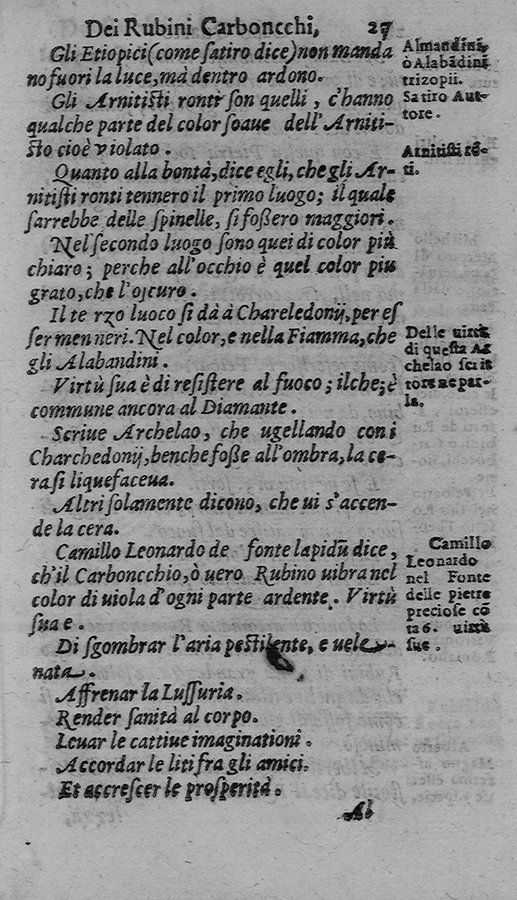 Dei Rubini Carboncchi, 27
Gli Etiopici (come satiro dice) non manda
no fuori la luce, mà dentro ardono.
Gli Arnitisti ronti son quelli, c'hanno
qualche parte del color soaue dell'Arniti-
sto cioè violato.
Quanto alla bontà, dice egli, che gli Ar-
nitisti ronti tennero il primo luogo; il quale
sarrebbe delle spinelle, si foßero maggiori.
Nel secondo luogo sono quei di color più
chiaro; perche all'occhio è quel color piu
grato, che l'oscuro.
Il te rzo luoco si dà à Chareledonij, per es
ser men neri. Nel color, e nella Fiamma, che
gli Alabandini.
Virtù sua è di resistere al fuoco; ilche; è
commune ancora al Diamante.
Scriue Archelao, che ugellando con i
Charchedonij, benche foße all'ombra, la ce-
ra si liquefaceua.
Altri solamente dicono, che ui s'accen-
de la cera.
Camillo Leonardo de fonte lapidū dice,
ch'il Carboncchio, ò uero Rubino uibra nel
color di uiola d'ogni parte ardente. Virtù
sua e.
Di sgombrar l'aria pestilente, e uele-
nata.
Affrenar la Lussuria.
Render sanità al corpo.
Leuar le cattiue imaginationi.
Accordar le liti fra gli amici.
Et accrescer le prosperità.
Al
Almandini,
ò Alabādini
trizopii.
Satiro Aut-
tore.
Arnitisti rō-
ti.
Delle uirtù
di questa Ar
chelao scrit
tore ne par-
la.
Camillo
Leonardo
nel Fonte
delle pietre
preciose cō
ta 6. uirtù
sue.